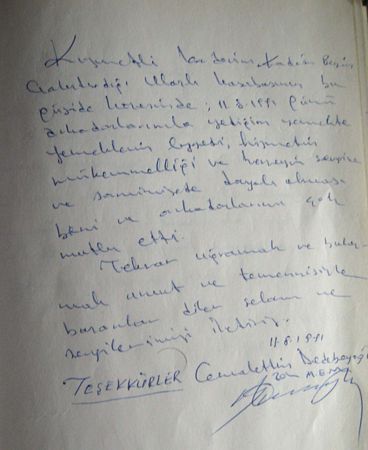 Kıymetli dostum, Kadir Beyin
çalıştırdığı Ulaşlı kasabasının bu
güzide köresinde; 11.8.1991 günü
arkadaşlarımla yediğim yemekte
yemeklerin lezzeti, hizmetin
mükemmelliği ve herşeyin sevgiye
ve samimiyete dayalı olması
beni ve arkadaşlarımı çok
mutlu etti.
Tekrar uğramak ve bulu-
mak umut ve temennisiyle
başarılar diler selam ve
sevgilerimizi iletiriz.
11.8.1991
TEŞEKKÜRLER Cemalettin Dedebeyoğlu